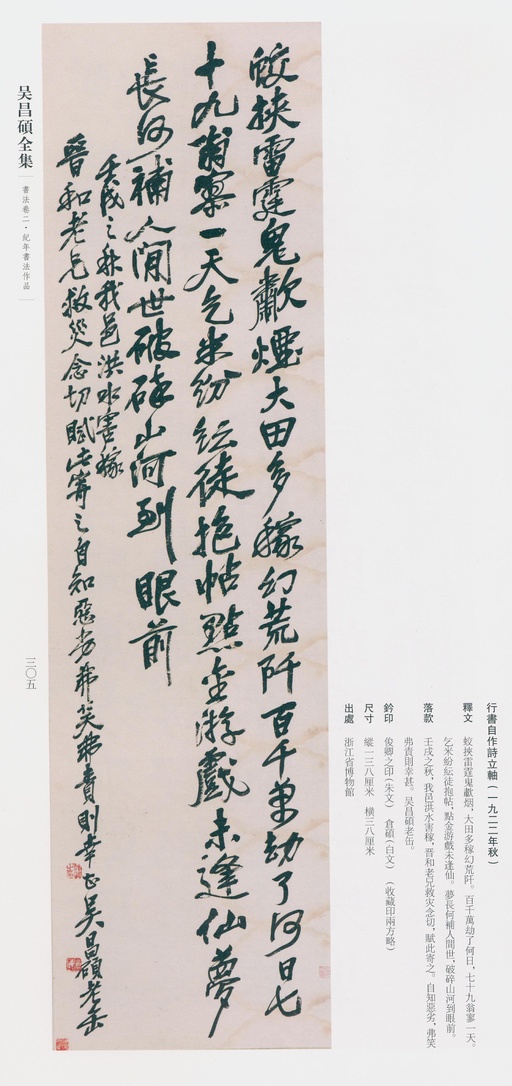 行書自作詩立軸(一九二二年秋)
釋文 蛟挾雷霆鬼歗烟,大田多稼幻荒阡。百千萬劫了何日,七十九翁寠一天。
乞米紛紜徒抱帖,點金游戲未逢仙。夢長何補人間世,破碎山河到眼前。
落款 壬戌之秋,我邑洪水害稼,晋和老兄救灾念切,賦此寄之。自知惡劣,弗笑
弗責則幸甚。吴昌碩老缶。
鈐印 俊卿之印(朱文) 倉碩(白文) (收藏印兩方略)
尺寸 縱一三八厘米 橫三八厘米
出處 浙江省博物館
蛟挾雷霆鬼歗煙大田多稼幻荒阡百千萬劫了何日七
十九翁寠一天乞米紛紜徒抱帖點金游戲未逢仙夢
長何補人間世破碎山河到眼前
壬戌之秌我邑洪水害稼
晉和老兄救災念切賦此寄之自知惡劣弗笑弗責則幸甚吳昌碩老缶
吴昌碩全集
書法卷二·紀年書法作品
三〇五